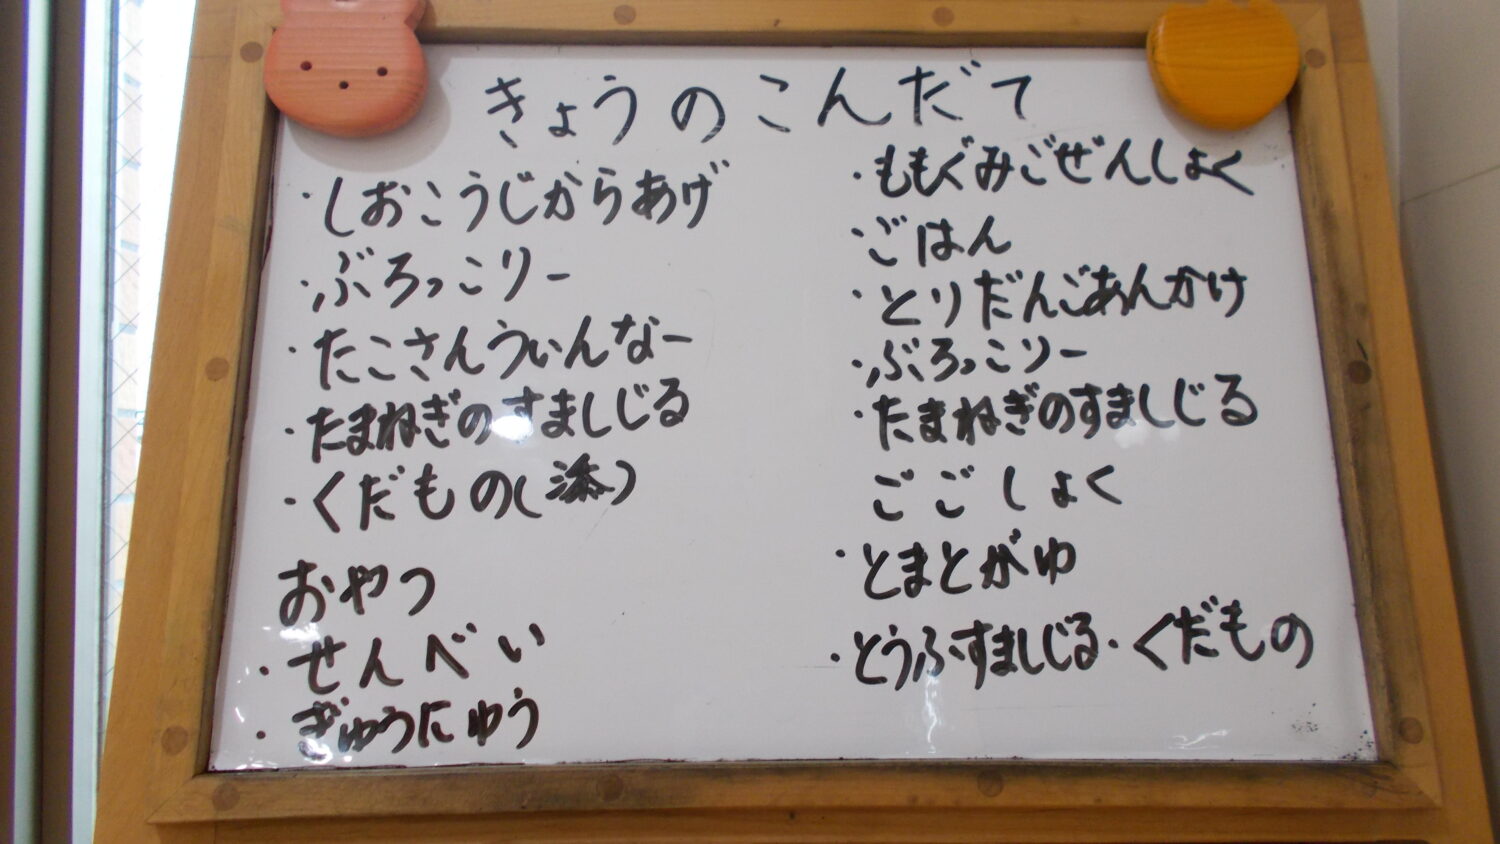 きょうのこんだて
・しおこうじからあげ
・ぶろっこりー
・たこさんういんなー
・たまねぎのすましじる
・くだもの(添)
おやつ
・せんべい
・ぎゅうにゅう
・ももぐみごぜんしょく
ごはん
・とりだんごあんかけ
・ぶろっこりー
・たまねぎのすましじる
ごごしょく
・とまとがゆ
・とうふすましじる・くだもの